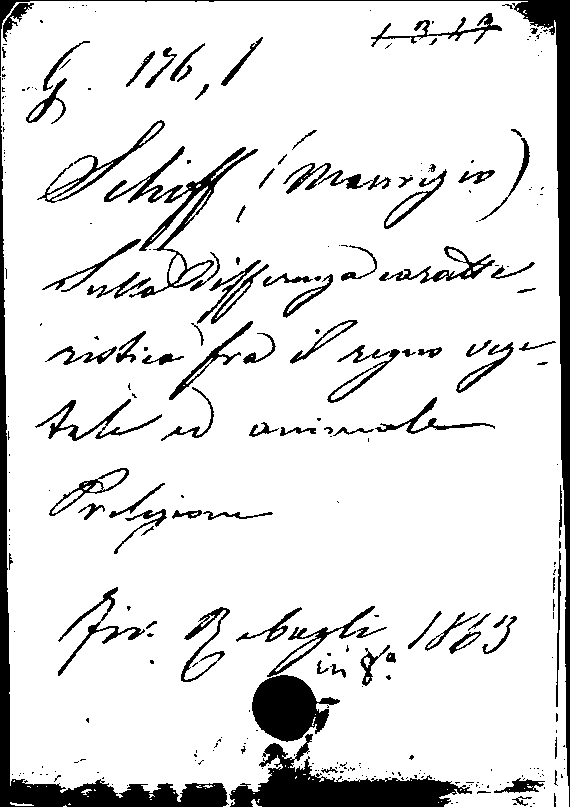 1, 3, 47
G. 176, 1
Schiff, (Maurizio)
Sulla differenza caratte-
ristica fra il regno vege-
tale ed animale
Prolezione
Fir. Bebugli 1863
in 8.°